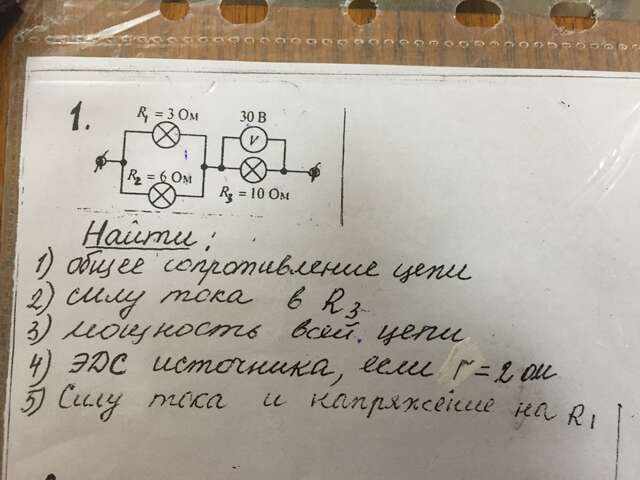 1.
R₁ = 3 Ом
30 В
V
R₂ = 6 Ом
R₃ = 10 Ом
Найти:
1) общее сопротивление цепи
2) силу тока в R₃
3) мощность всей цепи
4) ЭДС источника, если r = 2 ом
5) Силу тока и напряжение на R₁